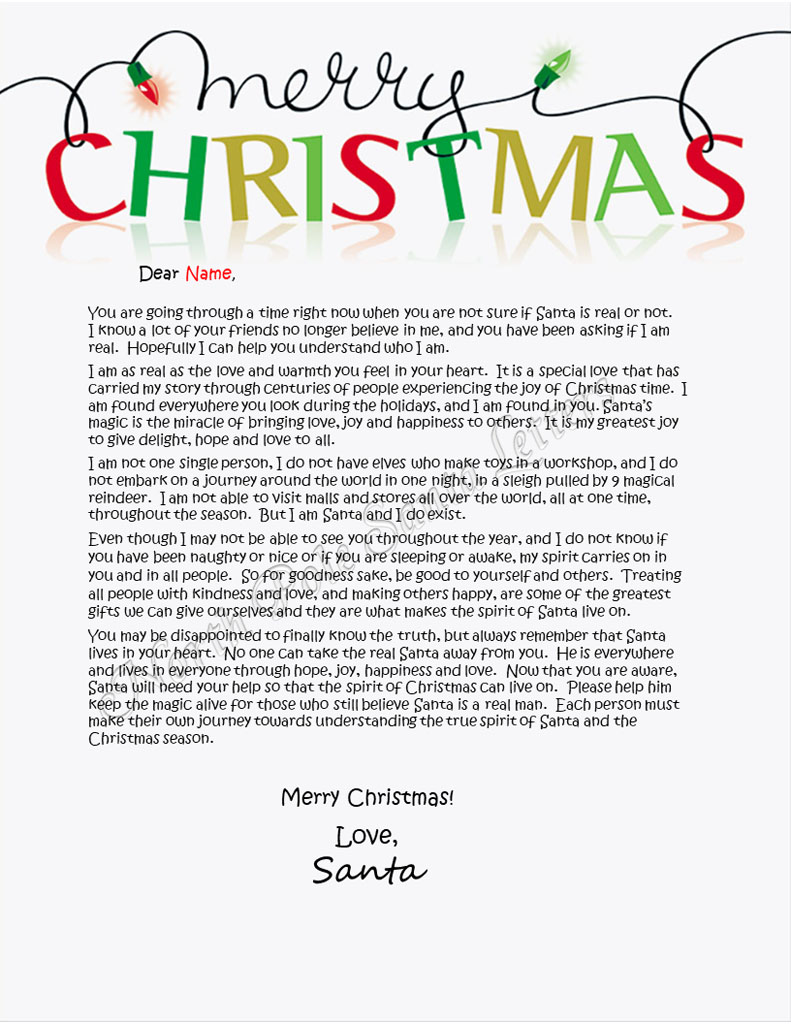 merry
CHRISTMAS
Dear Name,
You are going through a time right now when you are not sure if Santa is real or not.
I know a lot of your friends no longer believe in me, and you have been asking if I am
real. Hopefully I can help you understand who I am.
I am as real as the love and warmth you feel in your heart. It is a special love that has
carried my story through centuries of people experiencing the joy of Christmas time. I
am found everywhere you look during the holidays, and I am found in you. Santa's
magic is the miracle of bringing love, joy and happiness to others. It is my greatest joy
to give delight, hope and love to all.
I am not one single person, I do not have elves who make toys in a workshop, and I do
not embark on a journey around the world in one night, in a sleigh pulled by 9 magical
reindeer. I am not able to visit malls and stores all over the world, all at one time,
throughout the season. But I am Santa and I do exist.
Even though I may not be able to see you throughout the year, and I do not know if
you have been naughty or nice or if you are sleeping or awake, my spirit carries on in
you and in all people. So for goodness sake, be good to yourself and others. Treating
all people with kindness and love, and making others happy, are some of the greatest
gifts we can give ourselves and they are what makes the spirit of Santa live on.
You may be disappointed to finally know the truth, but always remember that Santa
lives in your heart. No one can take the real Santa away from you. He is everywhere
and lives in everyone through hope, joy, happiness and love. Now that you are aware,
Santa will need your help so that the spirit of Christmas can live on. Please help him
keep the magic alive for those who still believe Santa is a real man. Each person must
make their own journey towards understanding the true spirit of Santa and the
Christmas season.
Merry Christmas!
Love,
Santa
North Pole Santa Letters